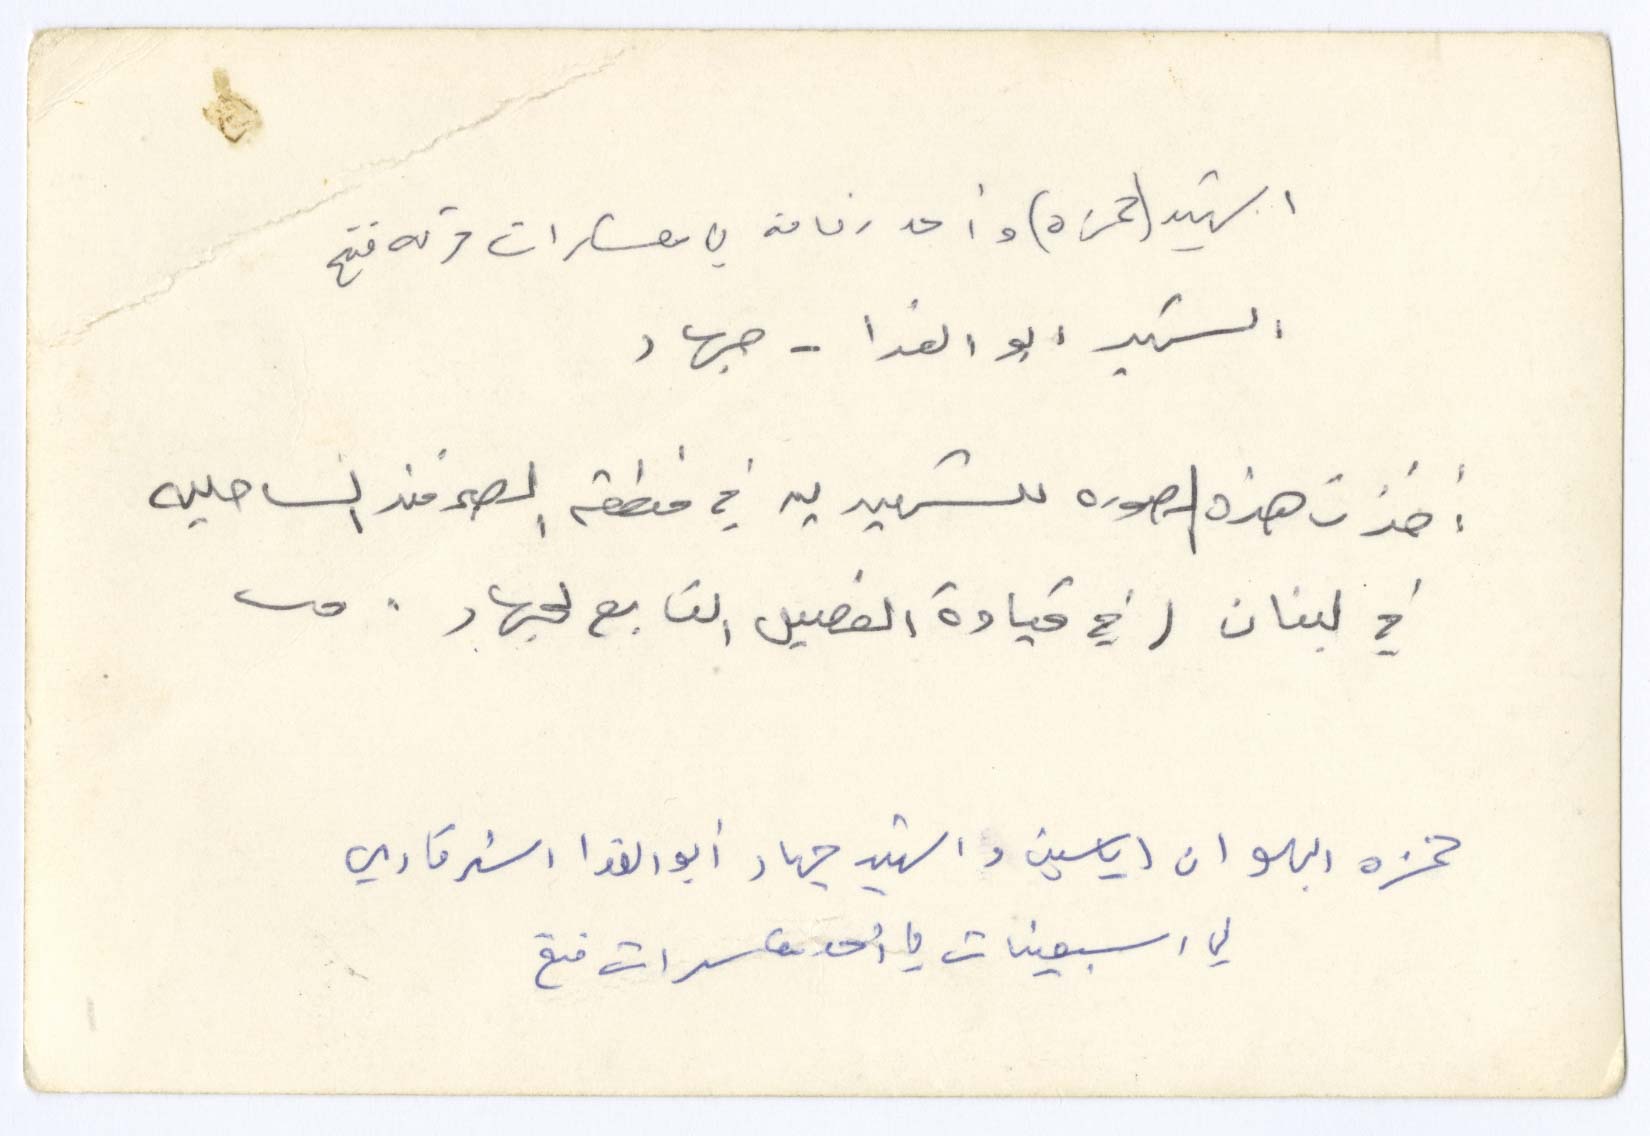 الشهيد (حمزه) وأحد رفاقه في معسكرات حركة فتح
الشهيد ابو الفدا - جهاد
أخذت هذه الصوره للشهيدين في منطقة الصرفند الساحليه
في لبنان ( في قيادة الفصيل التابع لجهاد .
حمزه البهلوان (ياسين) والشهيد جهاد أبو الفدا الشرقاوي
في السبعينات في أحد معسكرات فتح